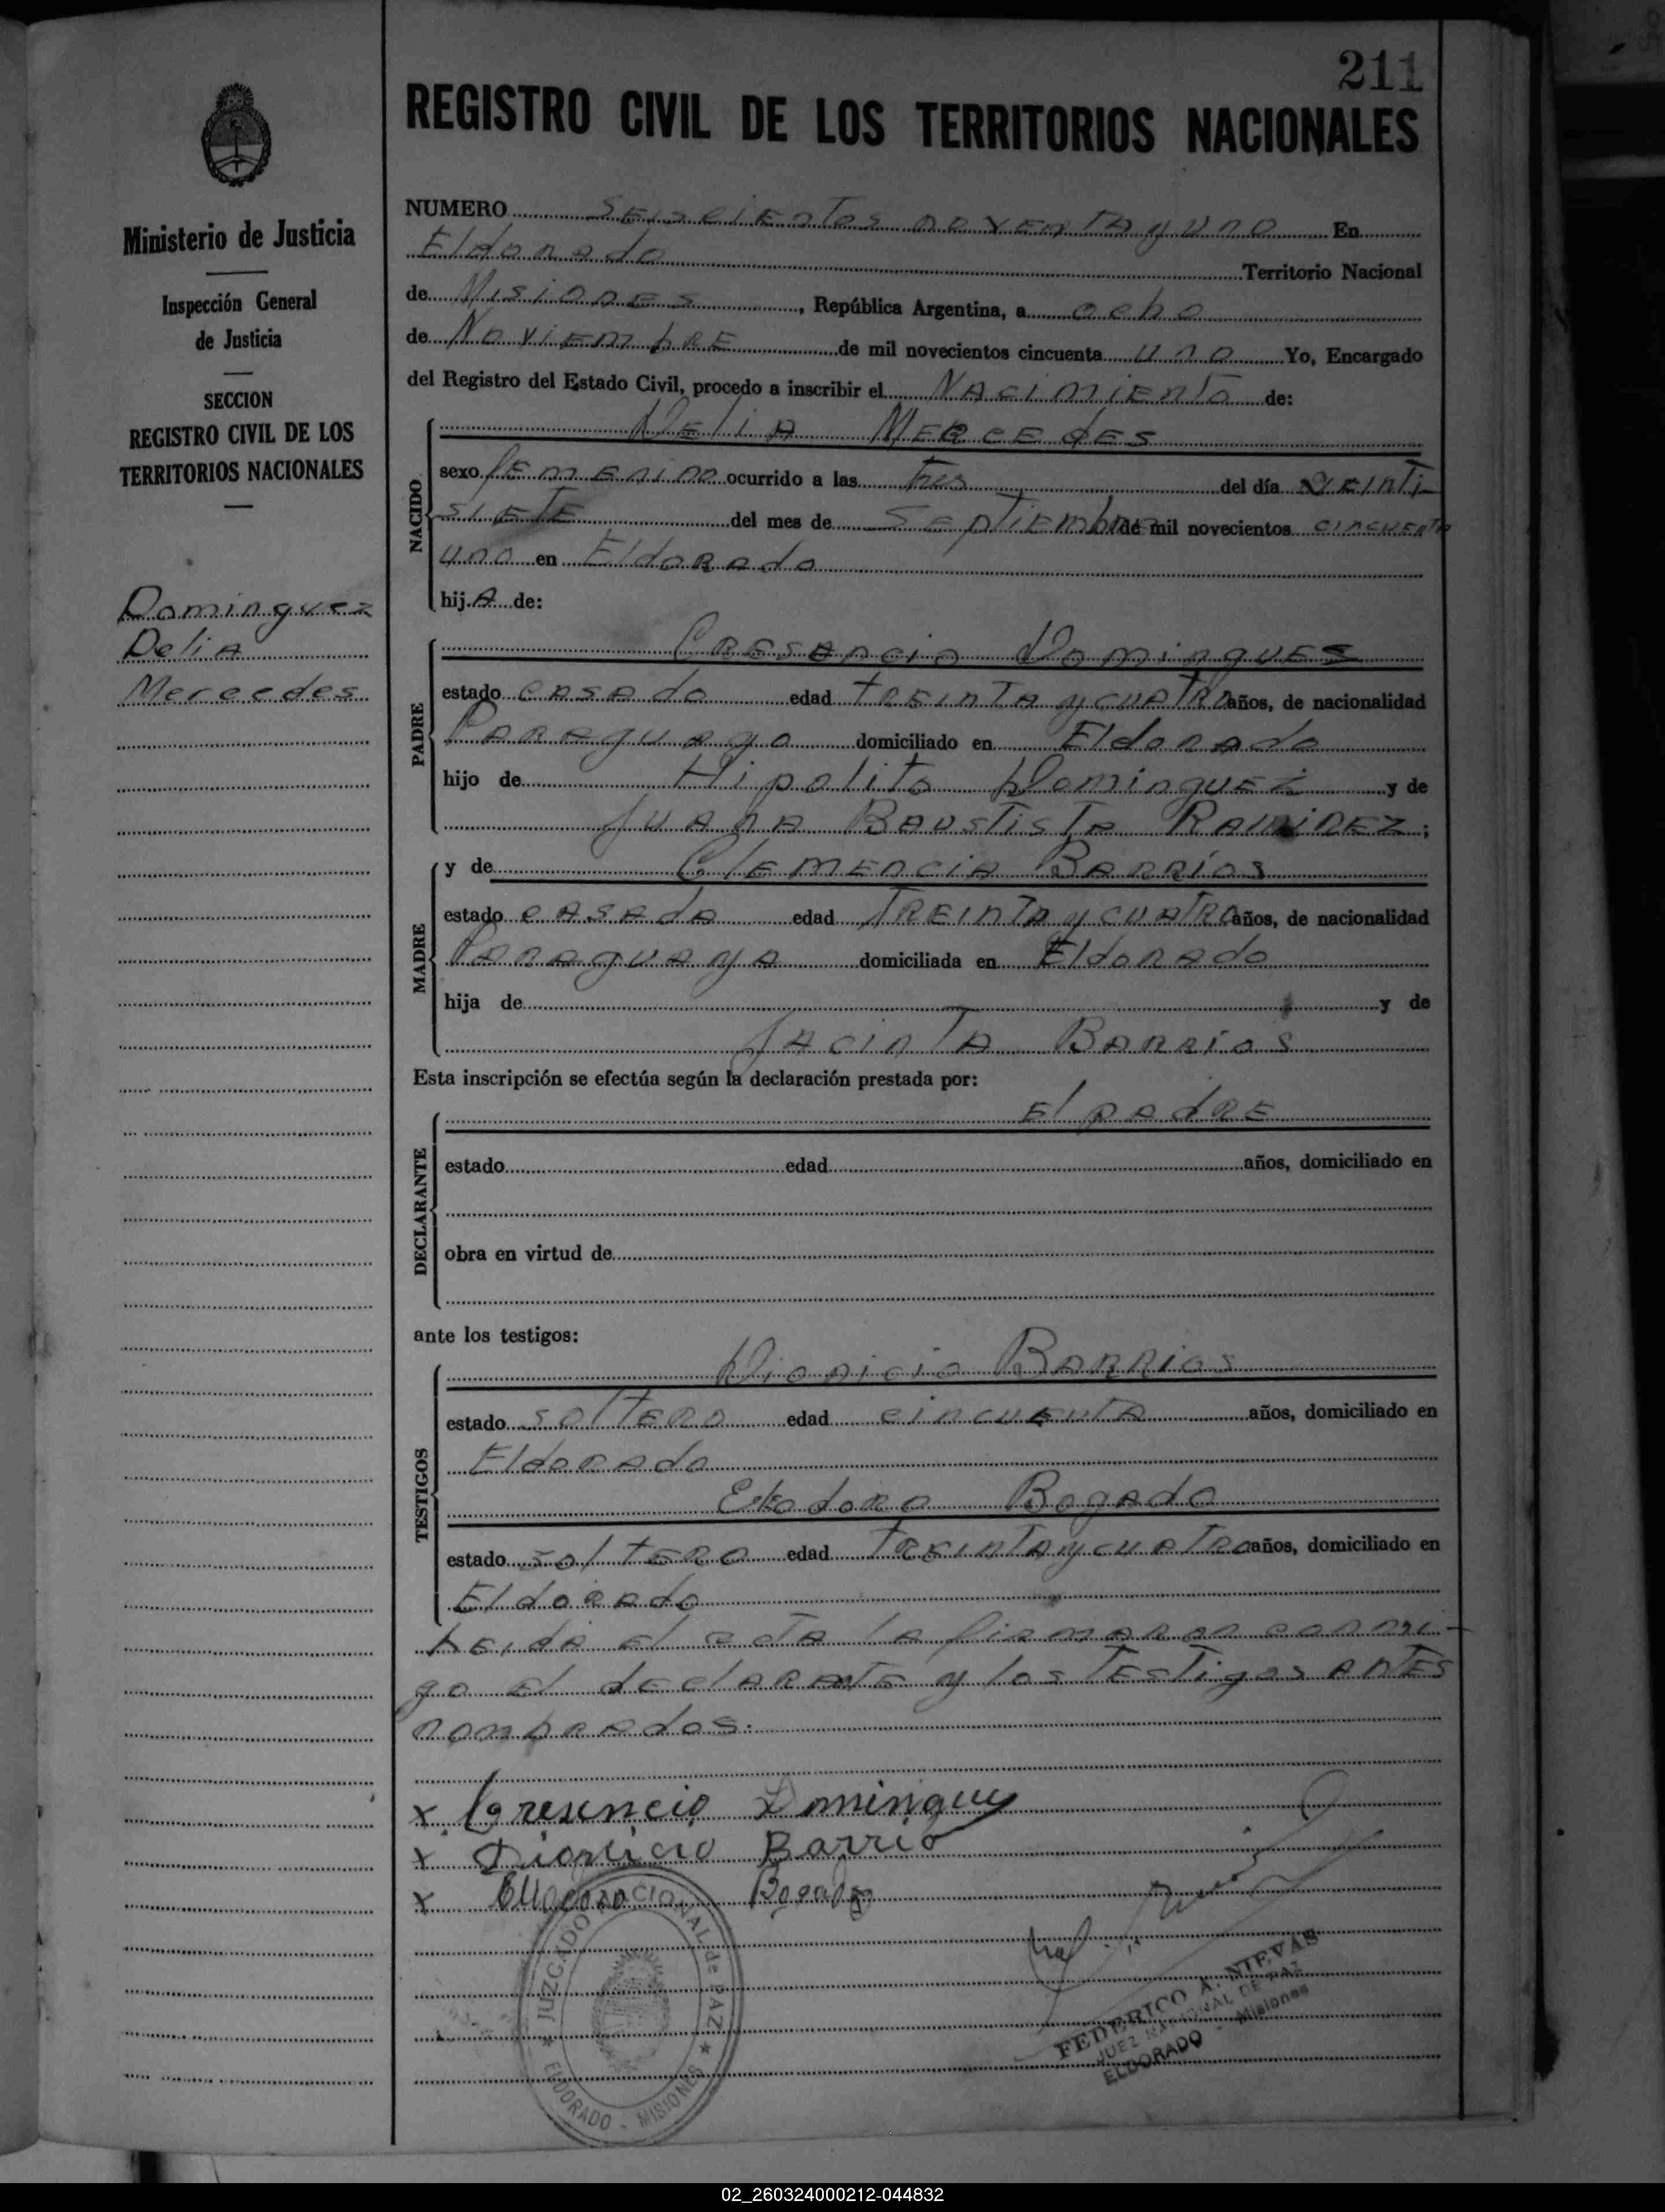 211
REGISTRO CIVIL DE LOS TERRITORIOS NACIONALES
Ministerio de Justicia
Inspección General
de Justicia
SECCION
REGISTRO CIVIL DE LOS
TERRITORIOS NACIONALES
Dominguez
Delia
Mercedes
NUMERO seiscientos noventa y uno En
Eldorado Territorio Nacional
de Misiones, República Argentina, a ocho
de Noviembre de mil novecientos cincuenta uno Yo, Encargado
del Registro del Estado Civil, procedo a inscribir el Nacimiento de:
NACIDO
Delia Mercedes
sexo femenino ocurrido a las tres del día veinti-
siete del mes de Septiembre de mil novecientos cincuenta
uno en Eldorado
hija de:
PADRE
Cresencio Domingues
estado casado edad treinta y cuatro años, de nacionalidad
Paraguayo domiciliado en Eldorado
hijo de Hipolito Dominguez y de
Juana Baustista Ramirez;
MADRE
y de Clemencia Barrios
estado casada edad treinta y cuatro años, de nacionalidad
Paraguaya domiciliada en Eldorado
hija de y de
Jacinta Barrios
Esta inscripción se efectúa según la declaración prestada por:
DECLARANTE
El padre
estado edad años, domiciliado en
obra en virtud de
ante los testigos:
TESTIGOS
Dionicio Barrios
estado soltero edad cincuenta años, domiciliado en
Eldorado
Bogado
estado soltero edad treinta y cuatro años, domiciliado en
Eldorado
Leida el acta la firmaron conmi-
go el declarante y los testigos antes
nombrados.
x Cresencio Domingues
x Dionicio Barrio
x Bogado
JUZGADO NACIONAL de PAZ
ELDORADO - MISIONES
FEDERICO A. NIEVAS
JUEZ NACIONAL DE PAZ
ELDORADO - Misiones
02_260324000212-044832